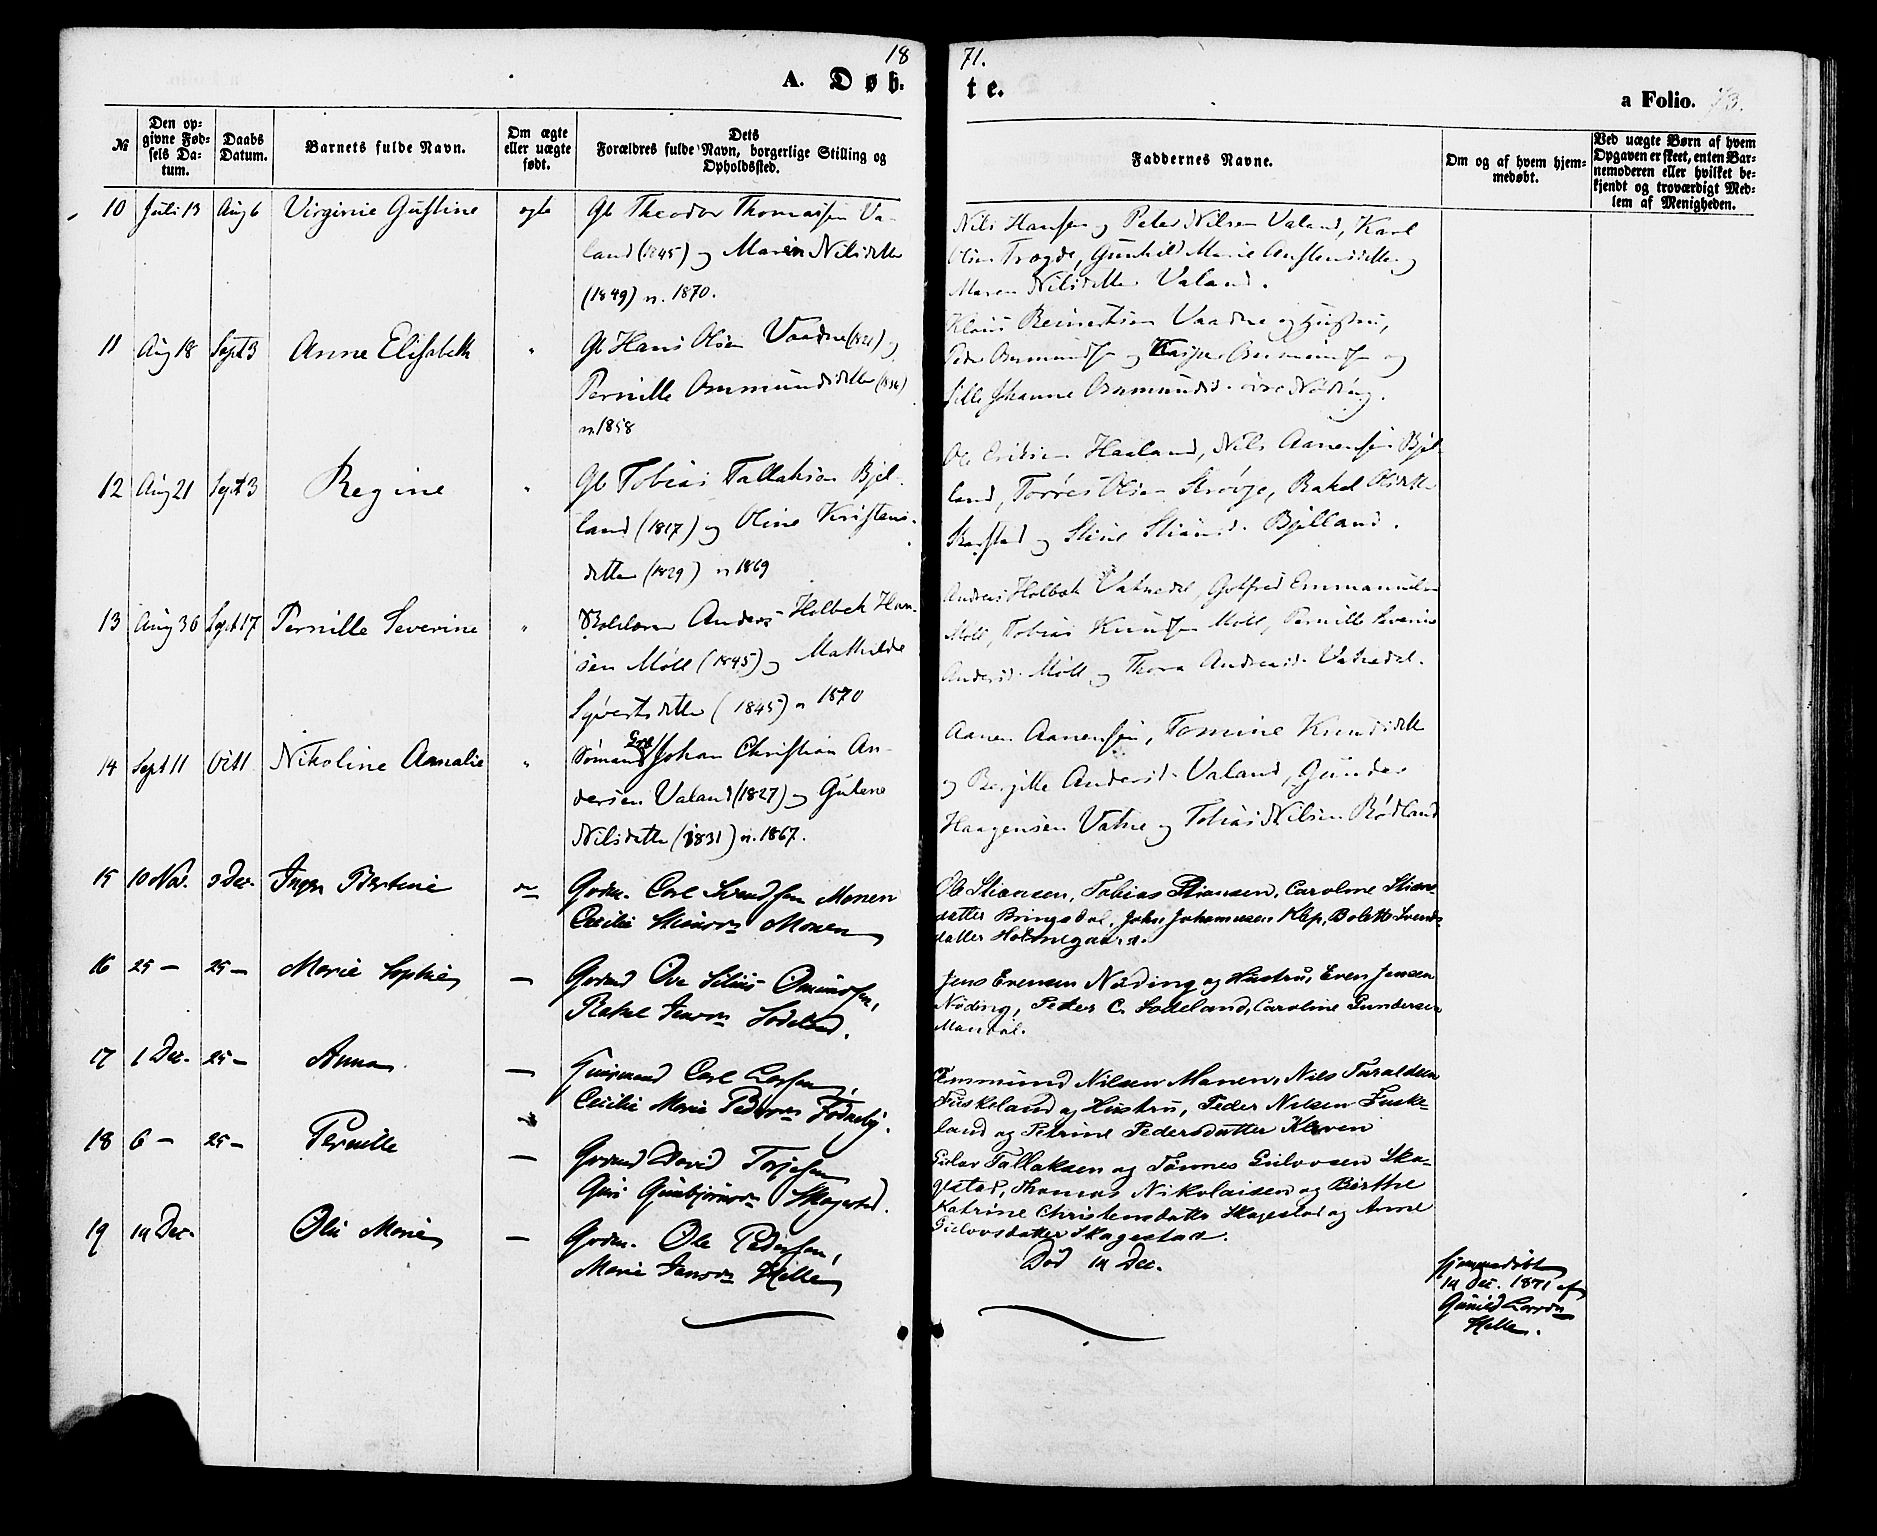 18 71.
A. Døb- te.
a Folio. 73.
№
Den opgivne Fødsels Datum.
Daabs Datum.
Barnets fulde Navn.
Om ægte eller uægte født.
Dets Forældres fulde Navn, borgerlige Stilling og Opholdssted.
Faddernes Navne.
Om og af hvem hjemmedøbt.
Ved uægte Børn af hvem Opgaven er skeet, enten Barnemoderen eller hvilket bekjendt og troværdigt Medlem af Menigheden.
10 Juli 13 Aug 6 Virginie Gustine ægte
Gb Theodor Thomassen Va-
land (1845) og Maren Nilsdatter
(1849) v. 1870.
Nils Hansen og Peter Nilsen Valand, Karl
Olsen Tregde, Gunhild Marie Austensdatter og
Maren Nilsdatter Valand.
11 Aug 18 Sept 3 Anne Elisabeth "
Gb Hans Olsen Vaadne (1821) og
Pernille Ommundsdatter
v. 1858
Klaus Reinertsen Vaadne og Hustru,
Peder Ommundsen og Kasper Ommundsen og
Sille Johanne Ommundsd. Nøding.
12 Aug 21 Sept 3 Regine "
Gb Tobias Tallaksen Bjel-
land (1817) og Oline Kristens-
datter (1829) v 1869
Ole Eriksen Haaland, Nils Aanensen Bjel-
land, Torres Olsen Rakel Olsdatter
og Stine Stiansd. Bjelland.
13 Aug 30 Sept 17 Pernille Severine "
Anders Holbek Han-
sen Møll (1845) og Mathilde
Syvertsdatter (1845) v 1870
Anders Holbek Vatnedal, Gotfred Emmanuelsen
Møll, Tobias Knutsen Møll, Pernille Severine
Andersd. Møll og Thora Andreasd. Vatnedal.
14 Sept 11 Oct 1 Nikoline Amalie "
Sømand Johan Christian An-
dersen Valand (1827) og Gulene
Nilsdatter (1831) v. 1867.
Aanen Aanensen, Tomine Knudsdatter
og Bergitte Andersd. Valand, Gunder
Haagensen Vatne og Tobias Nilsen Rødland
15 10 Nov. 3 Dec. Inger Bertine
Gvdm. Carl Svendsen Monen
Cecilie Monen
Ole Stiansen, Tobias Stiansen, Caroline Stians-
datter Bringsdal, John Johannesen Klep, Bolette Svends-
datter Holmegaard.
16 25 — 25 — Marie Sophie —
Gvdmd Ove Silius Omundsen,
Rakel Jensdr Sodeland.
Jens Evensen Nøding og Hustru, Even Jensen
Nøding, Peder C. Sodeland, Caroline Gundersen
Mandal.
17 1 Dec. 25 — Anna —
Huusmand Carl Larsen,
Cecilie Marie Pedersdr Fodnebø.
Ommund Nilsen Manen, Nils Taraldsen
Fuskeland og Hustru, Peder Nilsen Fuske-
land og Petrine Pedersdatter Kleven
18 6 — 25 — Pernille —
Gvdmd David Torjesen
Guri Gunbjørnsdr Skagestad.
Tallaksen og Tønnes Gulovsen Ska-
gestad, Thomas Nikolaisen og Birthe
Katrine Christensdatter Skagestad og Anne
Gulovsdatter Skagestad.
19 14 Dec. Ole Marie —
Gvdm. Ole Pedersen,
Marie Jensdr Helle
Død 14 Dec.
hjemmedøbt
14 Dec. 1871 af
Gunild Larsdr
Helle.